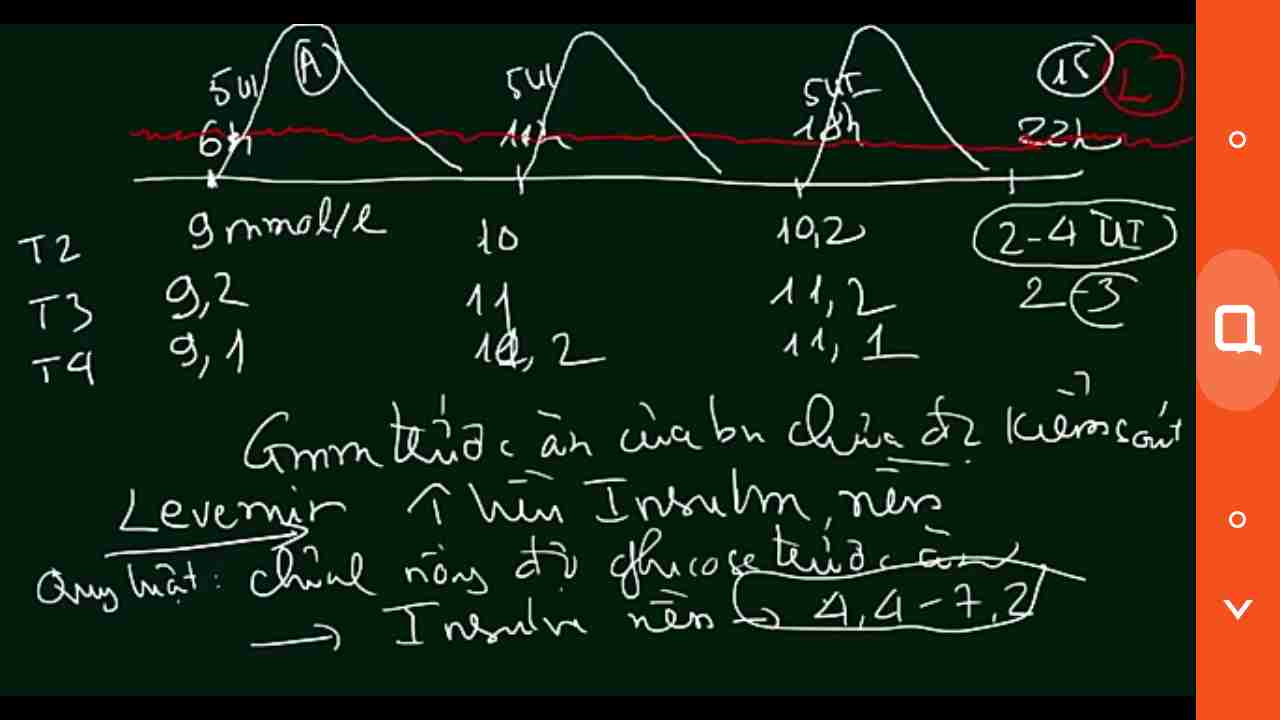 5UI A 5UI 5UI 15 L
6h 11h 18h 22h
T2 9mmol/l 10 10,2 2-4 UI
T3 9,2 11 11,2 2-3
T4 9,1 , 2 11, 1
Gmm trước ăn của bn chưa đc kiểm soát
Levemir ↑ liều Insulin nền
Quy luật: chỉnh glucose trước ăn
→ Insulin nền → 4,4-7,2